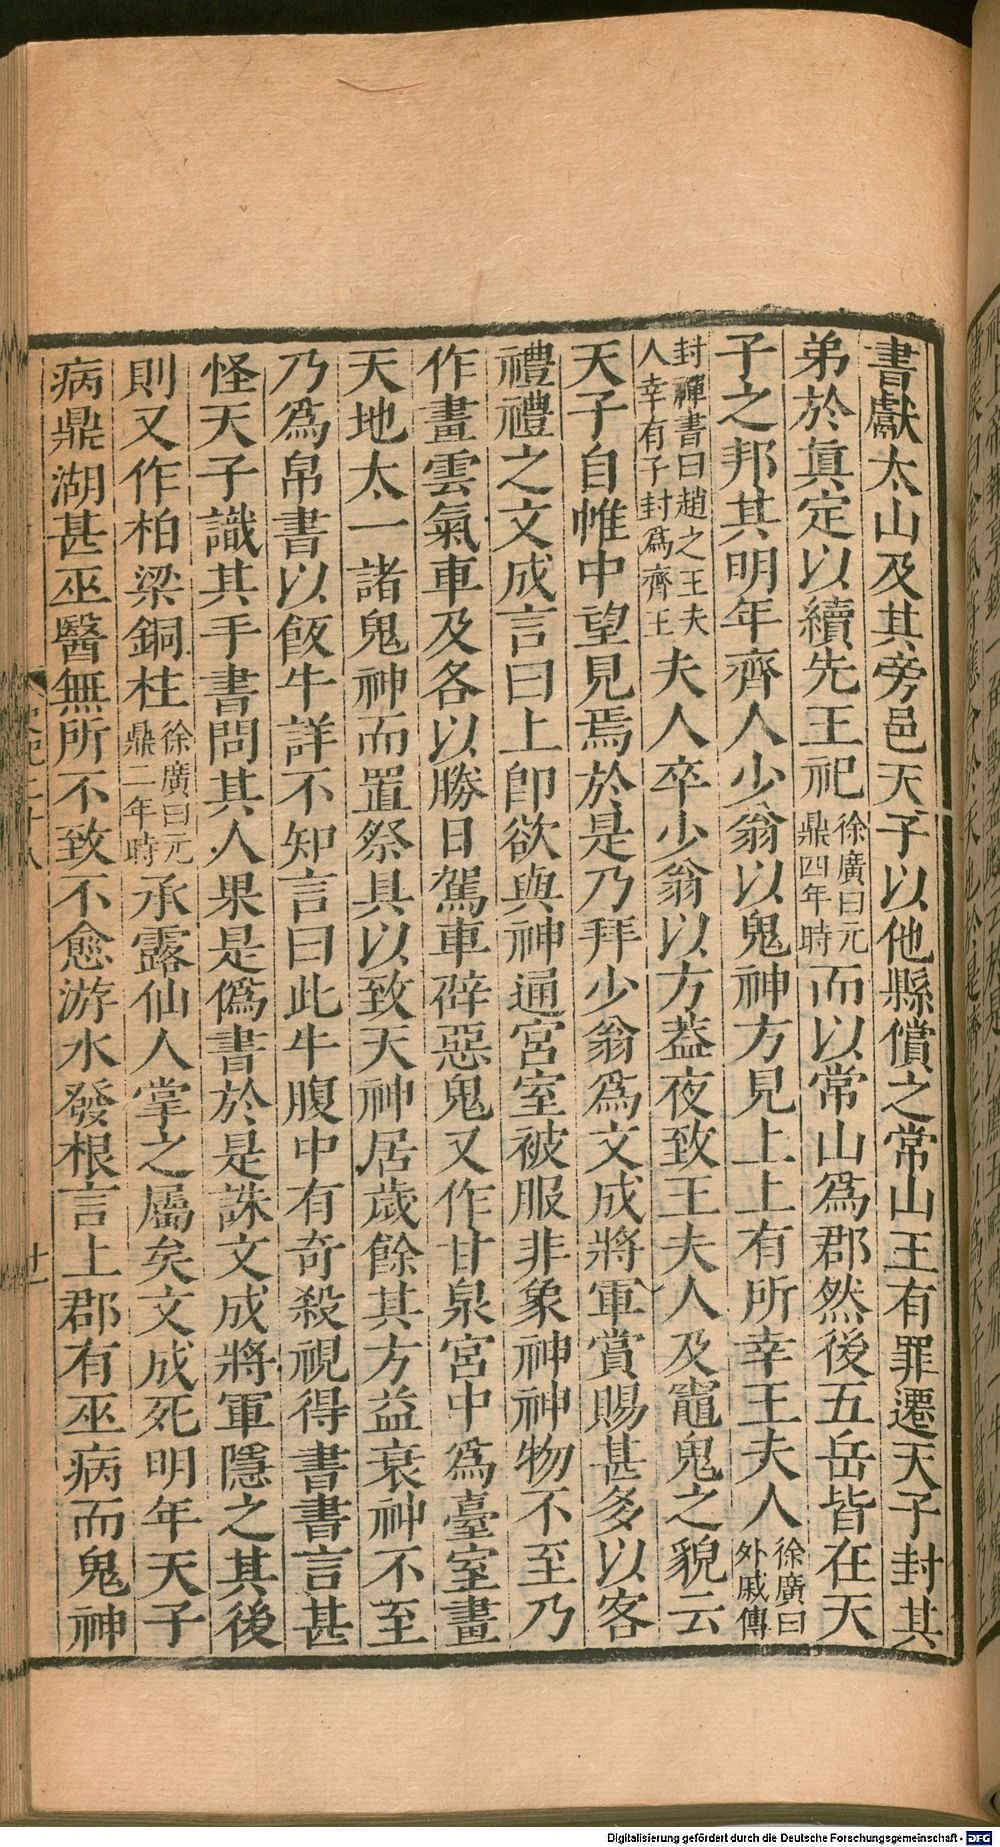 書獻太山及其旁邑天子以他縣償之常山王有罪遷天子封其
弟於真定以續先王祀徐廣曰元鼎四年時而以常山爲郡然後五岳皆在天
子之邦其明年齊人少翁以鬼神方見上上有所幸王夫人徐廣曰外戚傳
封禪書曰趙之王夫人幸有子封爲齊王夫人卒少翁以方葢夜致王夫人及竈鬼之貌云
天子自帷中望見焉於是乃拜少翁爲文成將軍賞賜甚多以客
禮禮之文成言曰上卽欲與神通宮室被服非象神神物不至乃
作畫雲氣車及各以勝日駕車辟惡鬼又作甘泉宮中爲臺室畫
天地太一諸鬼神而置祭具以致天神居歲餘其方益衰神不至
乃爲帛書以飯牛詳不知言曰此牛腹中有奇殺視得書書言甚
怪天子識其手書問其人果是僞書於是誅文成將軍隱之其後
則又作柏梁銅柱徐廣曰元鼎二年時承露仙人掌之屬矣文成死明年天子
病鼎湖甚巫醫無所不致不愈游水發根言上郡有巫病而鬼神
廿一
Digitalisierung gefördert durch die Deutsche Forschungsgemeinschaft - DFG